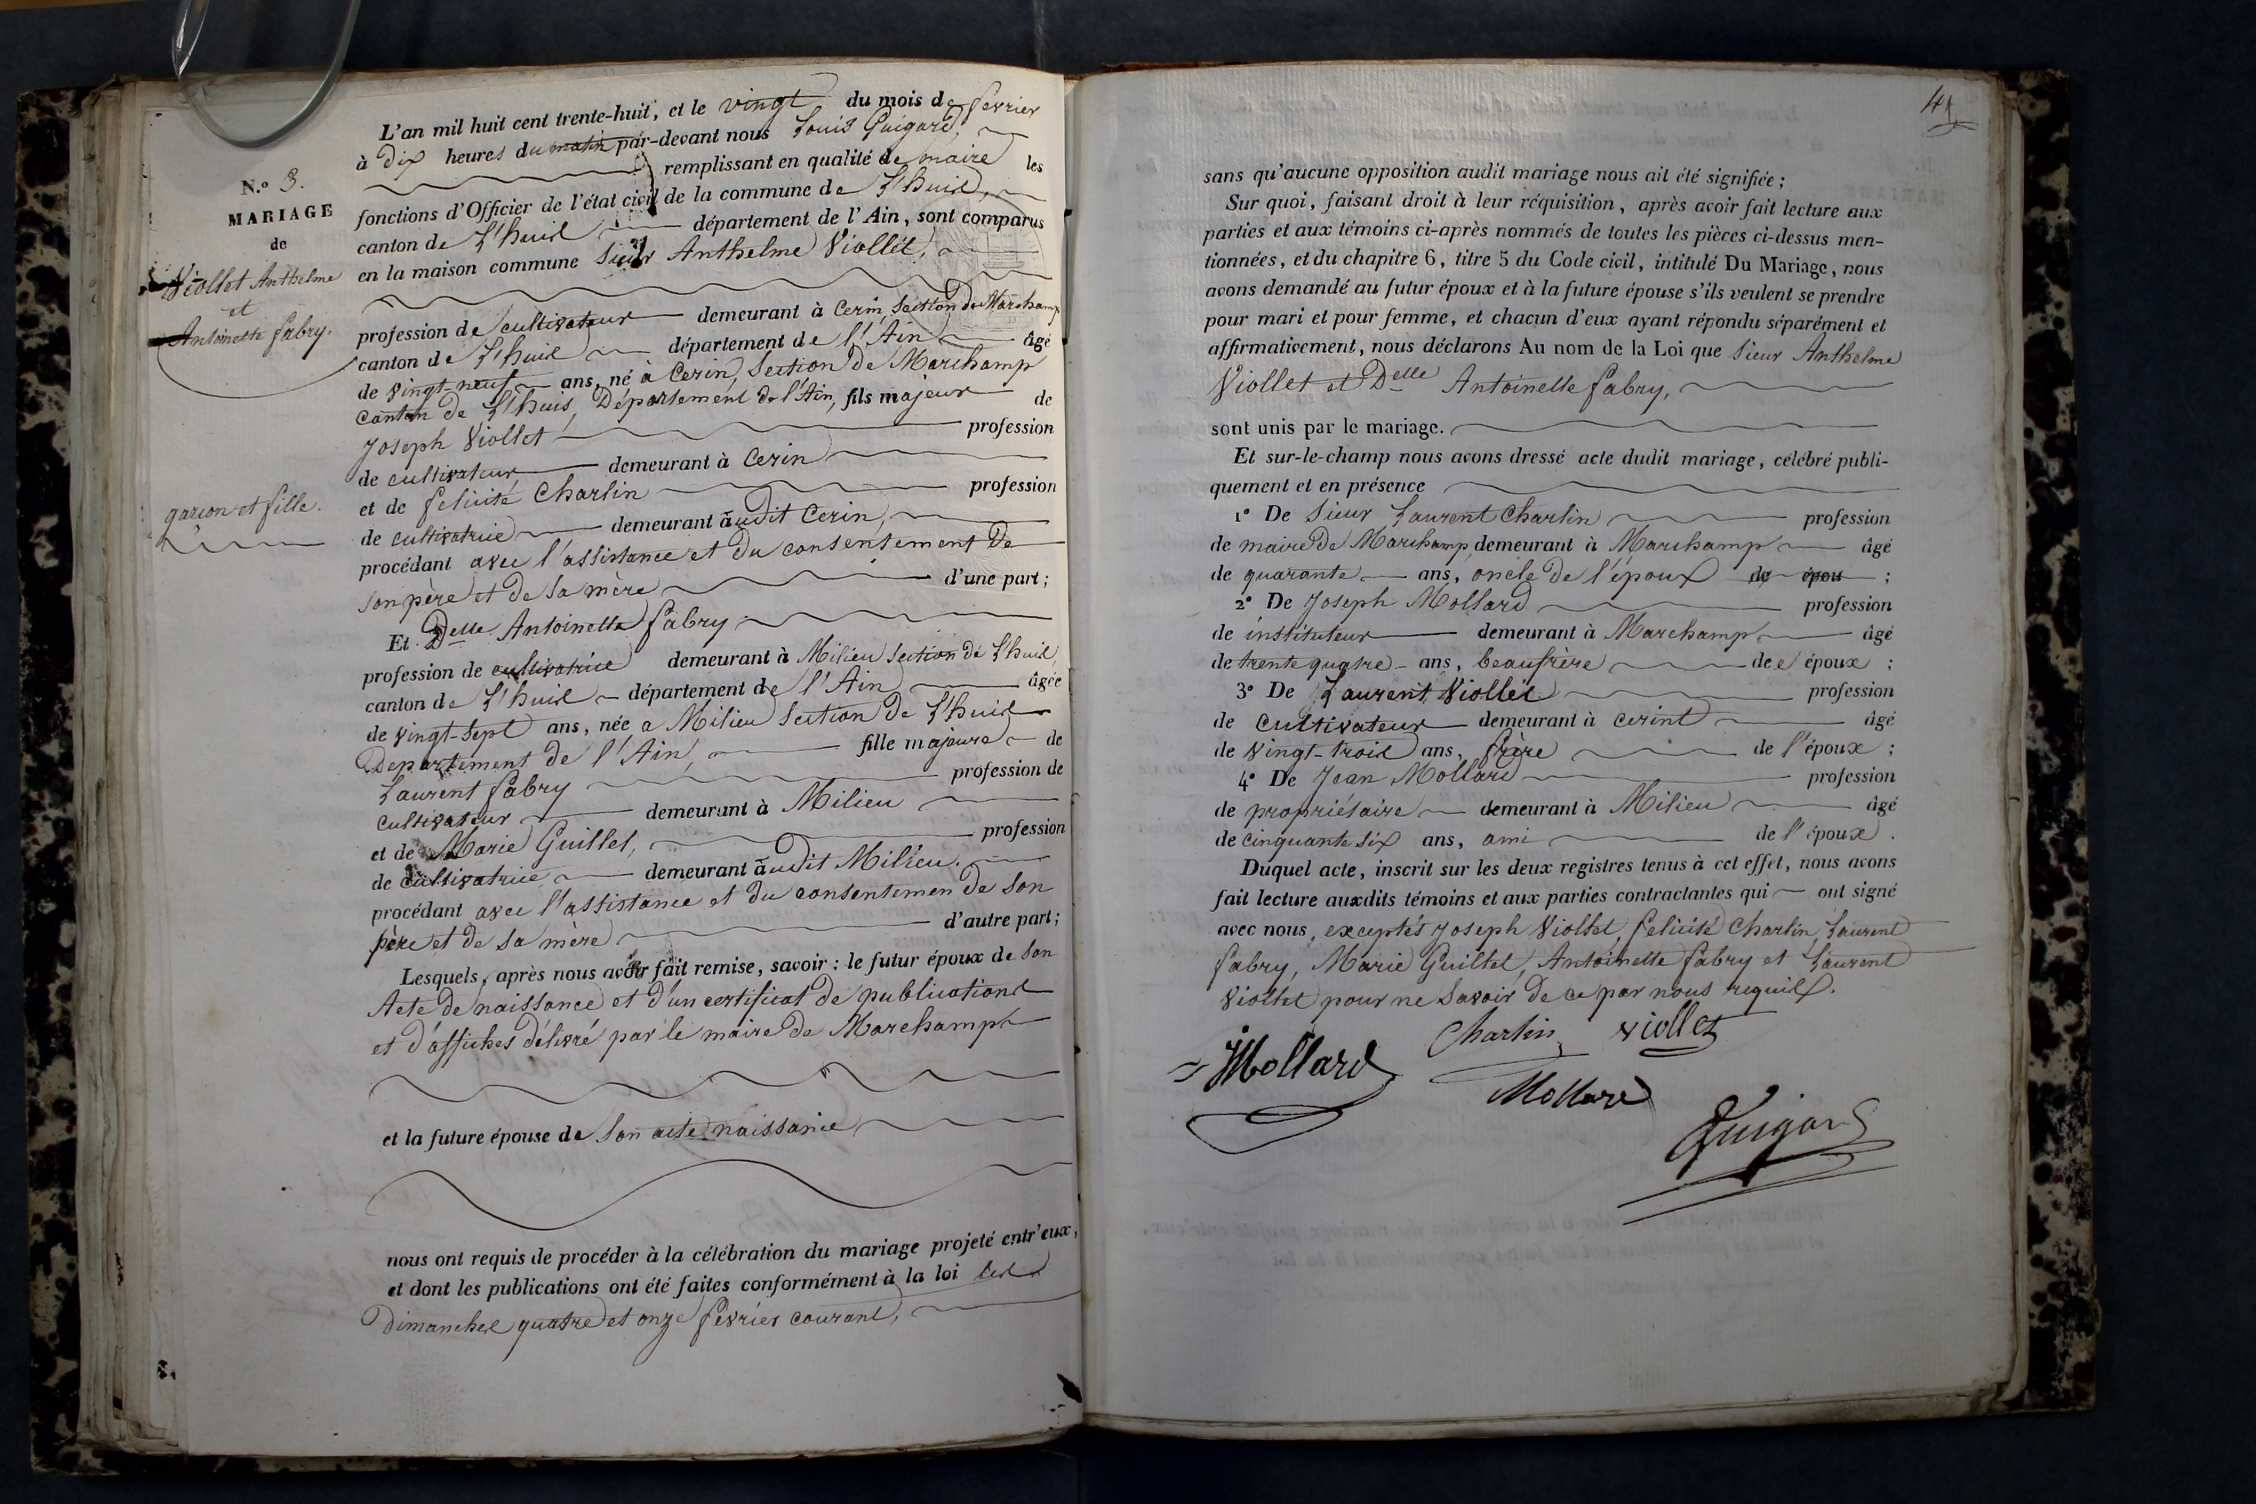 N.º 3.
MARIAGE
de
Viollet Anthelme
et
Antoinette fabry.
garcon et fille.
L'an mil huit cent trente-huit, et le vingt du mois de fevrier
à Dix heures du matin par-devant nous Louis Guigard,
remplissant en qualité de maire les
fonctions d'Officier de l'état civil de la commune de L'huis,
canton de L'huis département de l'Ain, sont comparus
en la maison commune Sieur Anthelme Viollet,
profession de cultivateur demeurant à Cerin, Section de Marchamp
canton de L'huis département de l'Ain âgé
de vingt-neuf ans, né à Cerin, Section de Marchamp
canton de L'huis, Département de l'Ain, fils majeur de
Joseph Viollet profession
de cultivateur demeurant à Cerin
et de felicité Charlin profession
de cultivatrice demeurant audit Cerin,
procédant avec l'assistance et du consentement De
son père et de sa mère d'une part;
Et Delle Antoinette fabry
profession de cultivatrice demeurant à Milieu Section de L'huis
canton de L'huis département de l'Ain âgée
de vingt-sept ans, née a Milieu Section De L'huis
Departement de l'Ain, fille majeure de
Laurent fabry profession de
cultivateur demeurant à Milieu
et de Marie Guillet, profession
de cultivatrice demeurant audit Milieu.
procédant avec l'assistance et du consentemen de son
père et de sa mère d'autre part;
Lesquels, après nous avoir fait remise, savoir: le futur époux de son
Acte de naissance et d'un certificat de publications
et d'affiches délivré par le maire de Marchamp
et la future épouse de son acte naissance
nous ont requis de procéder à la célébration du mariage projeté entr'eux,
et dont les publications ont été faites conformément à la loi les
Dimanches quatre et onze fevrier courant,
41
sans qu'aucune opposition audit mariage nous ait été signifiée;
Sur quoi, faisant droit à leur réquisition, après avoir fait lecture aux
parties et aux témoins ci-après nommés de toutes les pièces ci-dessus men-
tionnées, et du chapitre 6, titre 5 du Code civil, intitulé Du Mariage, nous
avons demandé au futur époux et à la future épouse s'ils veulent se prendre
pour mari et pour femme, et chacun d'eux ayant répondu séparément et
affirmativement, nous déclarons Au nom de la Loi que Sieur Anthelme
Viollet et Delle Antoinette fabry,
sont unis par le mariage.
Et sur-le-champ nous avons dressé acte dudit mariage, célébré publi-
quement et en présence
1º De Sieur Laurent Charlin profession
de maire de Marchamp, demeurant à Marchamp âgé
de quarante ans, oncle De l'époux de épou ;
2º De Joseph Mollard profession
de instituteur demeurant à Marchamp âgé
de trente quatre ans, beaufrère de l époux ;
3º De Laurent Viollet profession
de cultivateur demeurant à cerint âgé
de vingt-trois ans, frère de l'époux ;
4º De Jean Mollard profession
de propriétaire demeurant à Milieu âgé
de cinquante six ans, ami de l'époux.
Duquel acte, inscrit sur les deux registres tenus à cet effet, nous avons
fait lecture auxdits témoins et aux parties contractantes qui ont signé
avec nous, exceptés Joseph Viollet, felicité Charlin, Laurent
fabry, Marie Guillet, Antoinette fabry et Laurent
Viollet pour ne savoir de ce par nous requis.
Charlin Viollet
Mollard
Mollard
Guigard